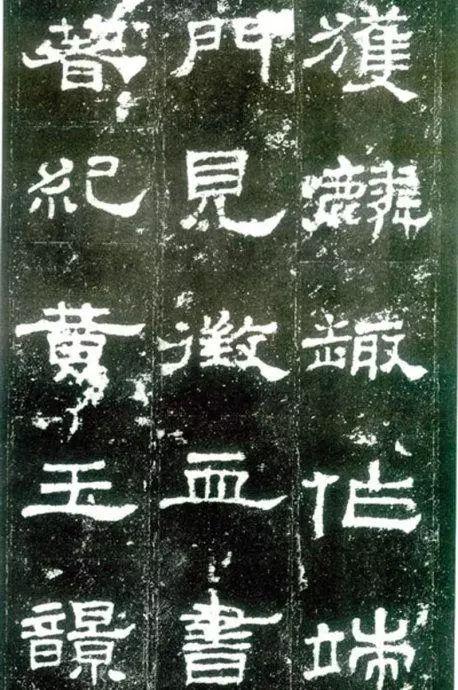 獲麟趣作端
門見徵血書
著紀黃玉𩐿